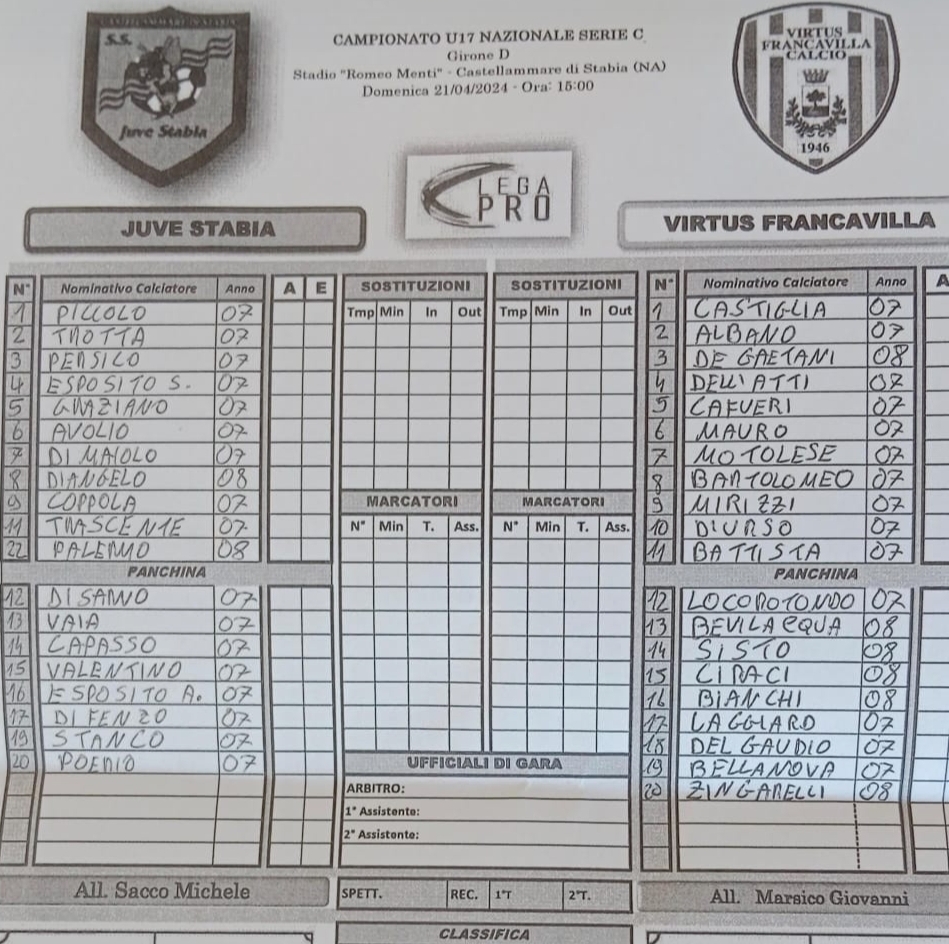 S.S.
Juve Stabia
CAMPIONATO U17 NAZIONALE SERIE C
Girone D
Stadio "Romeo Menti" - Castellammare di Stabia (NA)
Domenica 21/04/2024 - Ora: 15:00
VIRTUS
FRANCAVILLA
CALCIO
1946
LEGA
PRO
JUVE STABIA
VIRTUS FRANCAVILLA
N° Nominativo Calciatore Anno A E
1 PICCOLO 07
2 TROTTA 07
3 PERSICO 07
4 ESPOSITO S. 07
5 GRAZIANO 07
6 AVOLIO 07
7 DI MAIOLO 07
8 DIANGELO 08
9 COPPOLA 07
11 TRASCENTE 07
22 PALERMO 08
PANCHINA
12 DI SARNO 07
13 VAIA 07
14 CAPASSO 07
15 VALENTINO 07
16 ESPOSITO A. 07
17 DI FENZO 07
19 STANCO 07
20 POERIO 07
All. Sacco Michele
SOSTITUZIONI SOSTITUZIONI
Tmp Min In Out Tmp Min In Out
MARCATORI MARCATORI
N° Min T. Ass. N° Min T. Ass.
UFFICIALI DI GARA
ARBITRO:
1° Assistente:
2° Assistente:
SPETT. REC. 1°T 2°T.
CLASSIFICA
N° Nominativo Calciatore Anno A
1 CASTIGLIA 07
2 ALBANO 07
3 DE GAETANI 08
4 DELL'ATTI 07
5 CAFUERI 07
6 MAURO 07
7 MOTOLESE 07
8 BARTOLOMEO 07
9 MIRIZZI 07
10 D'URSO 07
11 BATTISTA 07
PANCHINA
12 LOCOROTONDO 07
13 BEVILACQUA 08
14 SISTO 08
15 CIRACI 08
16 BIANCHI 08
17 LAGGIARD 07
18 DEL GAUDIO 07
19 BELLANOVA 07
20 ZINGARELLI 08
All. Marsico Giovanni